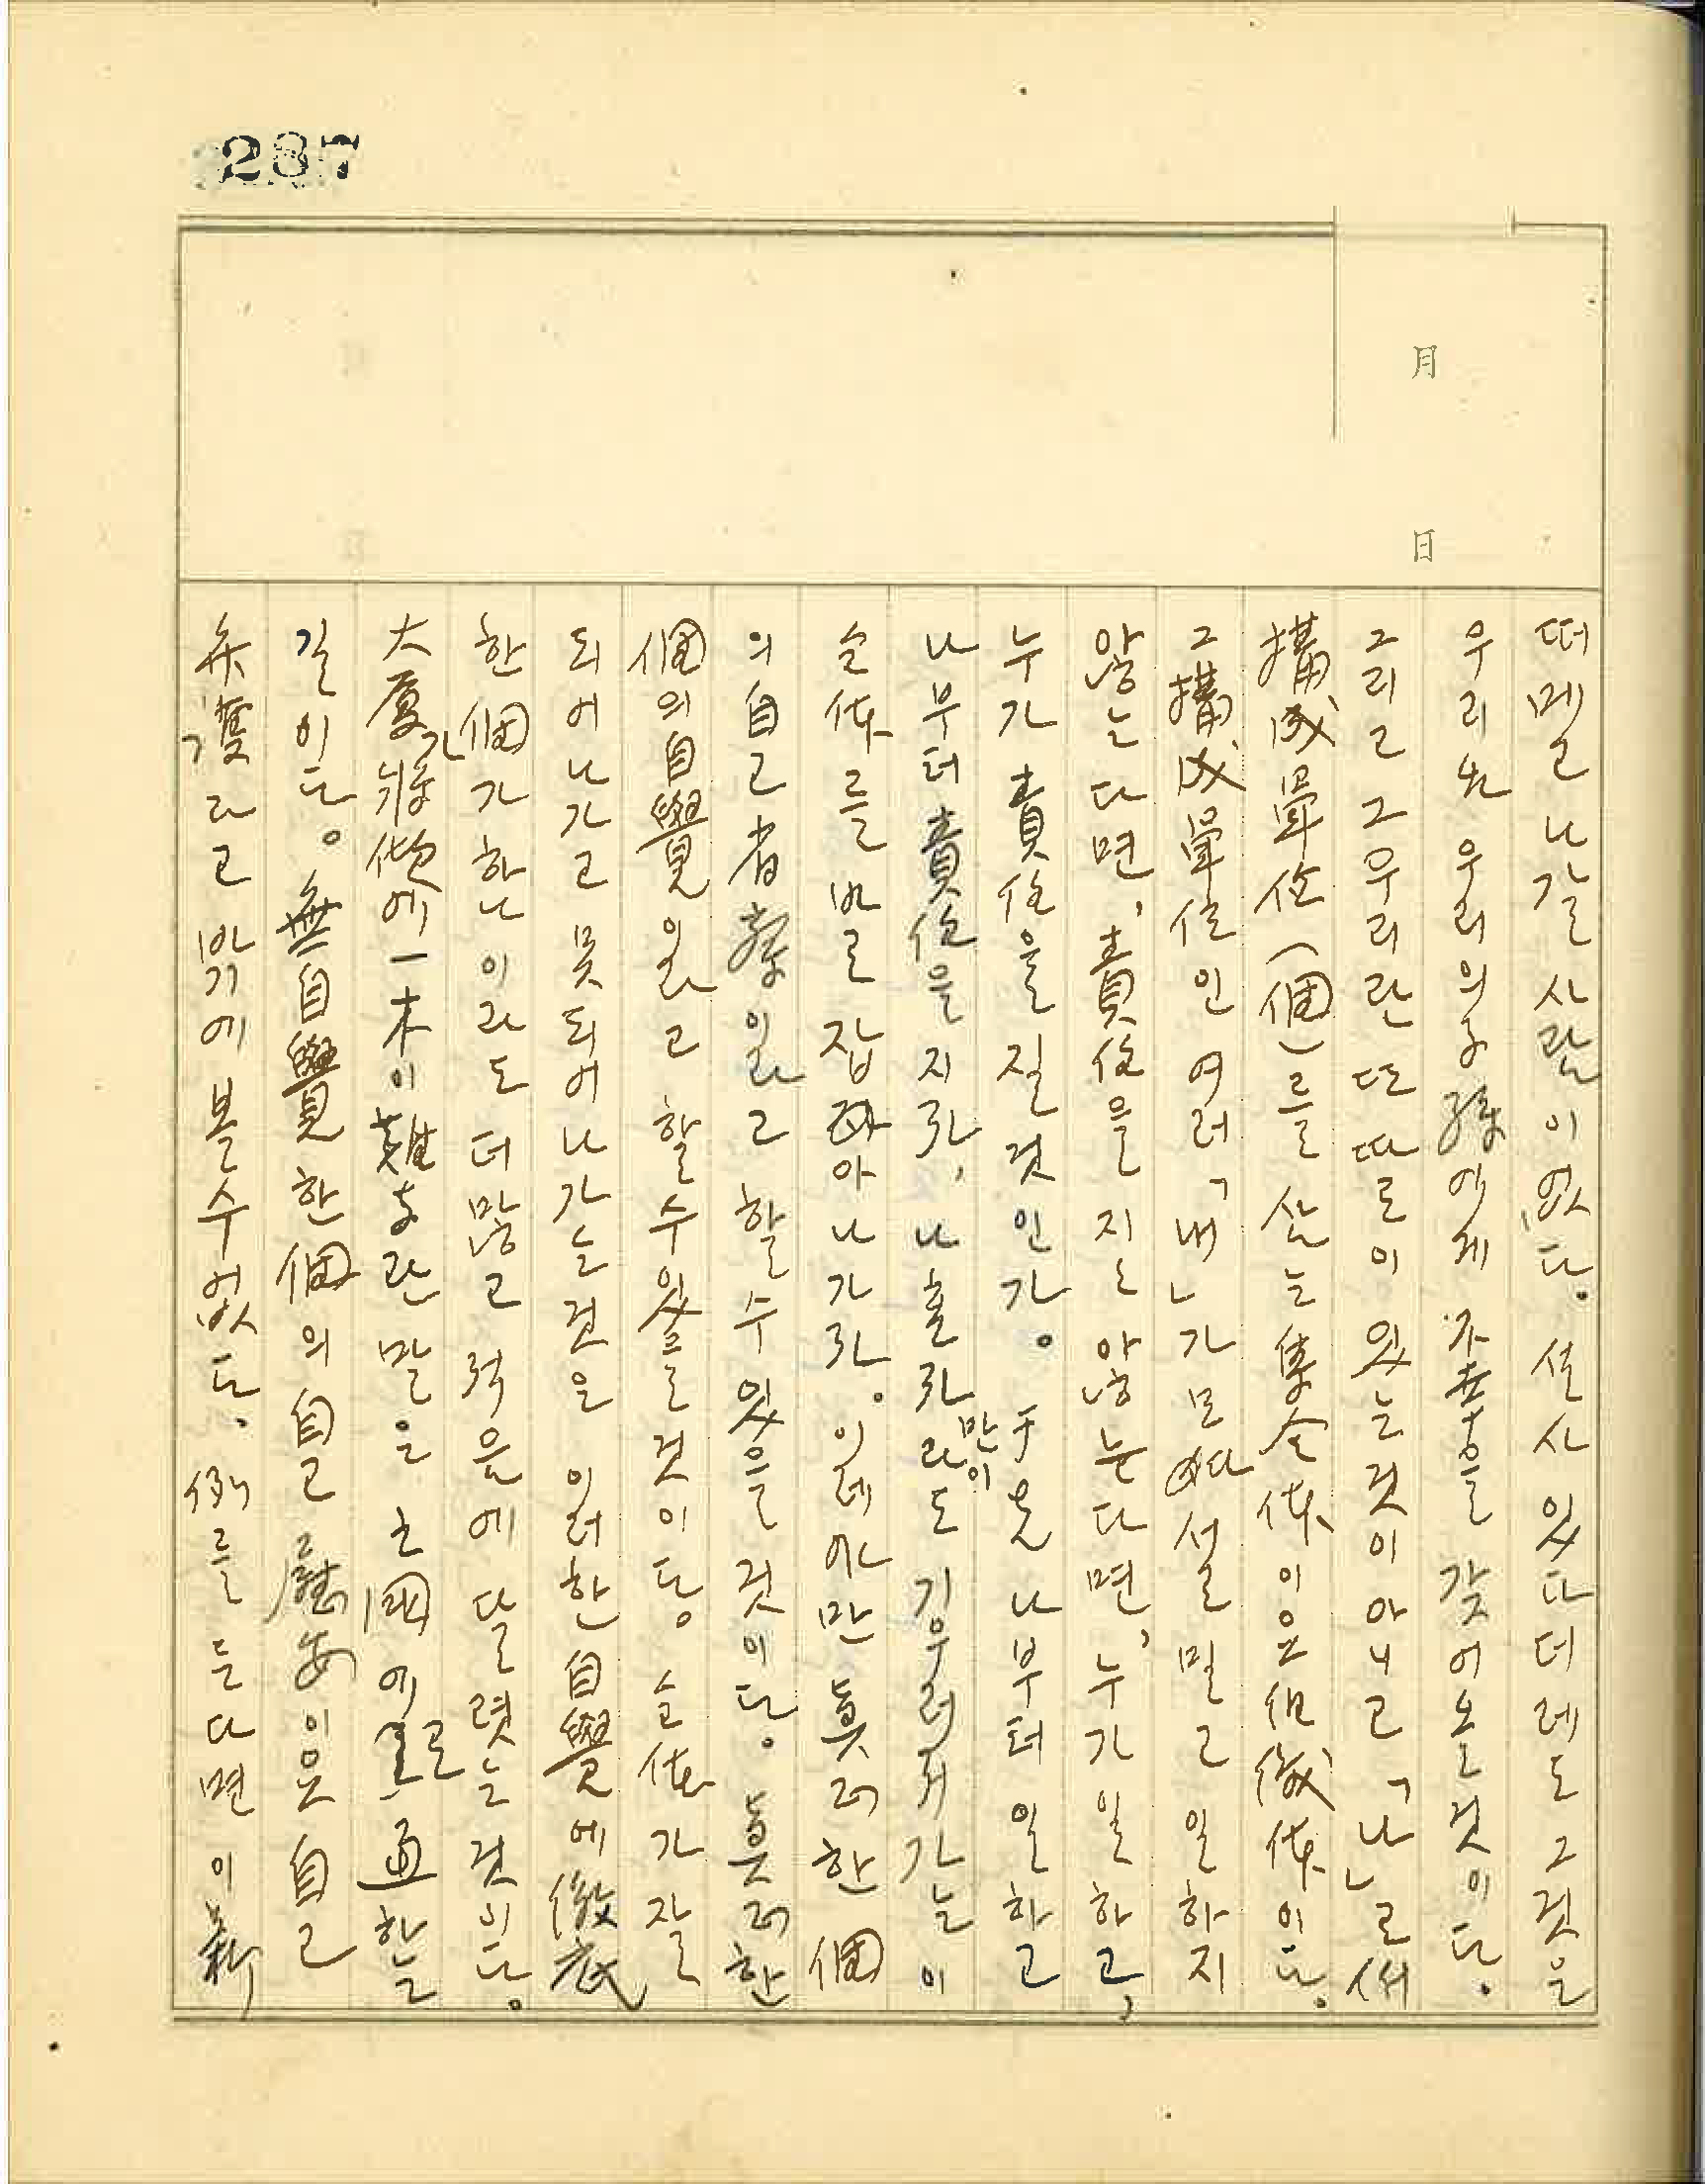 237
月
日
떠멜고 나갈 사람이 없다. 설사 있다 더레도 그것을
우리와 우리의 子孫에게 不幸을 갖어오는 것이다.
그리고 그 우리란 또 따로이 있는 것이 아니고 「나」로써
構成單位(個)를 삼는 集合體이오 組織體이다.
그 構成單位인 여러 「내」가 모여서 설 밀고 일하지
않는다면, 責任을 지는 않는다면, 누가 일하고,
누가 責任을 질 것인가. 于先 나부터 일하고
나부터 責任을 지라, 나 홀라만이라도 기우러저가는 이
全體를 바로잡아 나가라. 일에만 眞러한 個
의 自己省察일고 할 수 있을 것이다. 眞러한
個의 自覺일고 할 수 있을 것이다. 全體가 잘
되어나가고 못되어나가는 것은 이러한 自覺에 徹底
한 個가 하나이라도 더 많고 적은에 달렷는 것이다.
大廈가 將傾에 一木이 難支란 말은 亡國에로 通한
길이다. 無自覺한 個의 自己慰安이오 自己
弁護라고 밖기에 볼 수 없다. 例를 든다면 이 薪